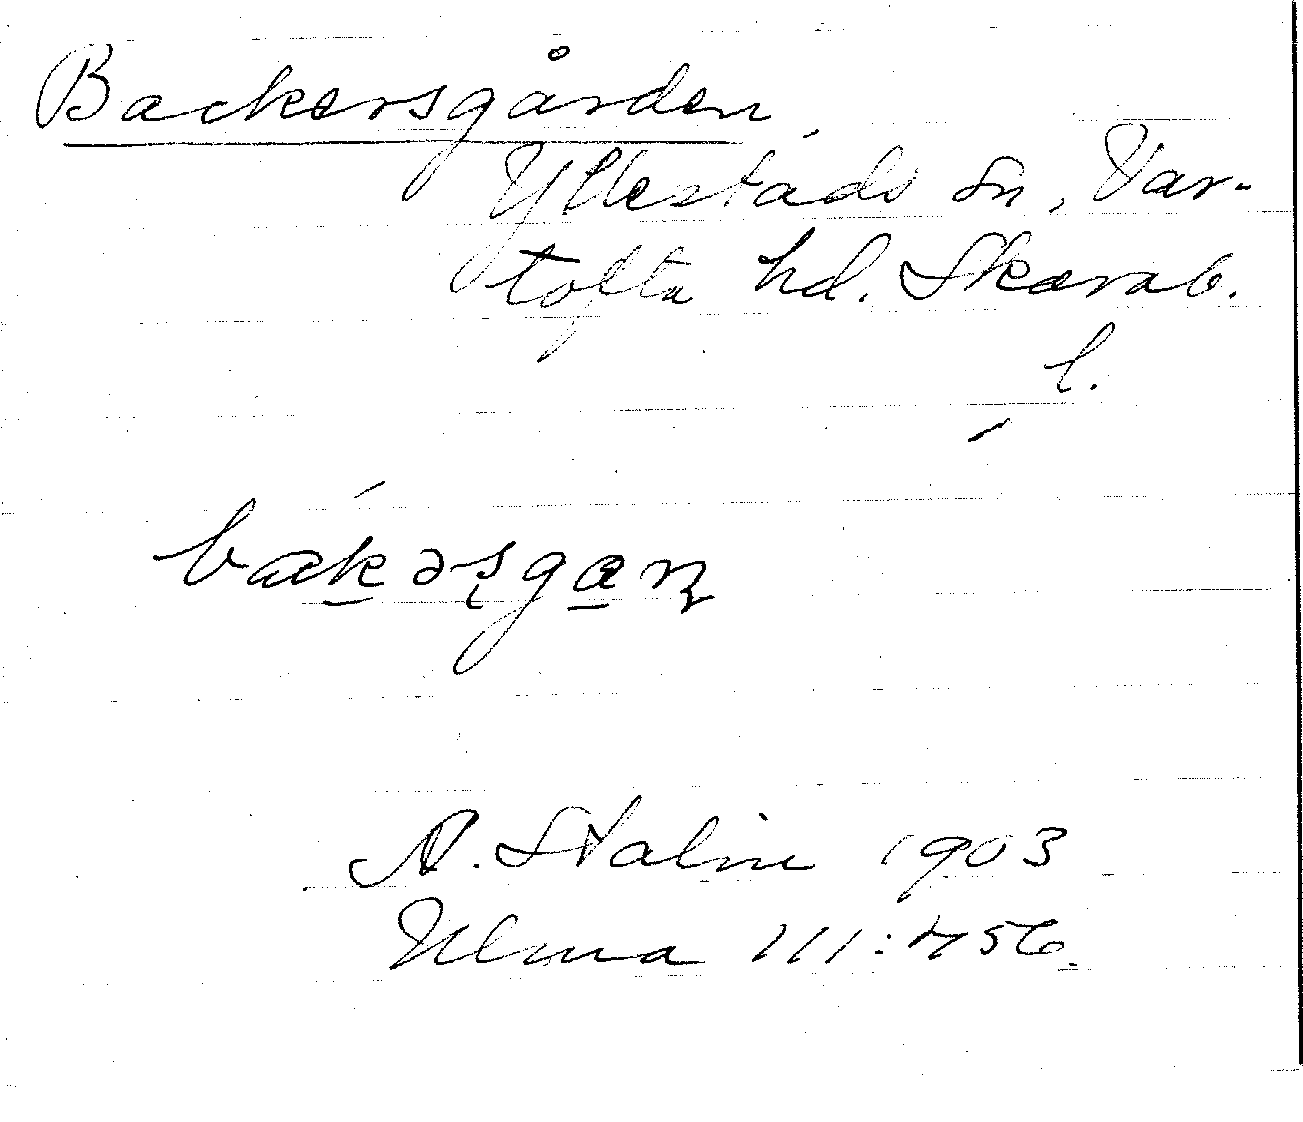 Backersgården,
Yllestads sn, Var-
tofta hd. Skarab.
l.
bakəʂgaɳ
A. Stalin 1903
Ulma 111:456.